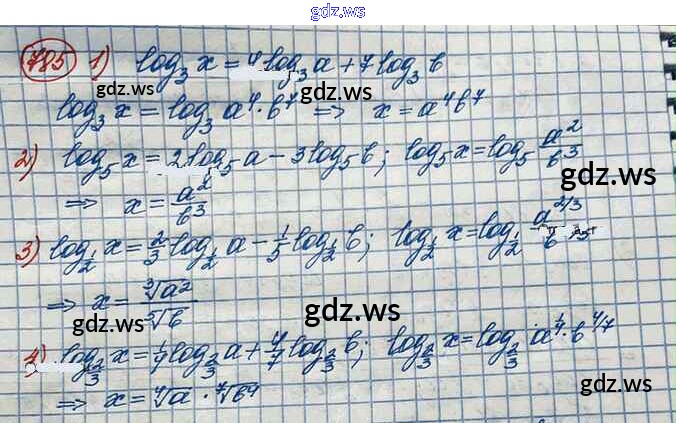 gdz.ws
785 1) log₃ x = 4 log₃ a + 7 log₃ b
gdz.ws
log₃ x = log₃ a⁴ · b⁷ ⇒ x = a⁴b⁷
gdz.ws
2) log₅ x = 2 log₅ a − 3 log₅ b; log₅ x = log₅ a²/b³
gdz.ws
gdz.ws
⇒ x = a²/b³
3) log_{1/2} x = 2/3 log_{1/2} a − 1/5 log_{1/2} b; log_{1/2} x = log_{1/2} a^{2/3}
gdz.ws
⇒ x = ∛a²/⁵√b
gdz.ws
4) log_{2/3} x = 1/4 log_{2/3} a + 4/7 log_{2/3} b; log_{2/3} x = log_{2/3} a^{1/4} · b^{4/7}
gdz.ws
gdz.ws
⇒ x = ⁴√a · ⁷√b⁴
gdz.ws